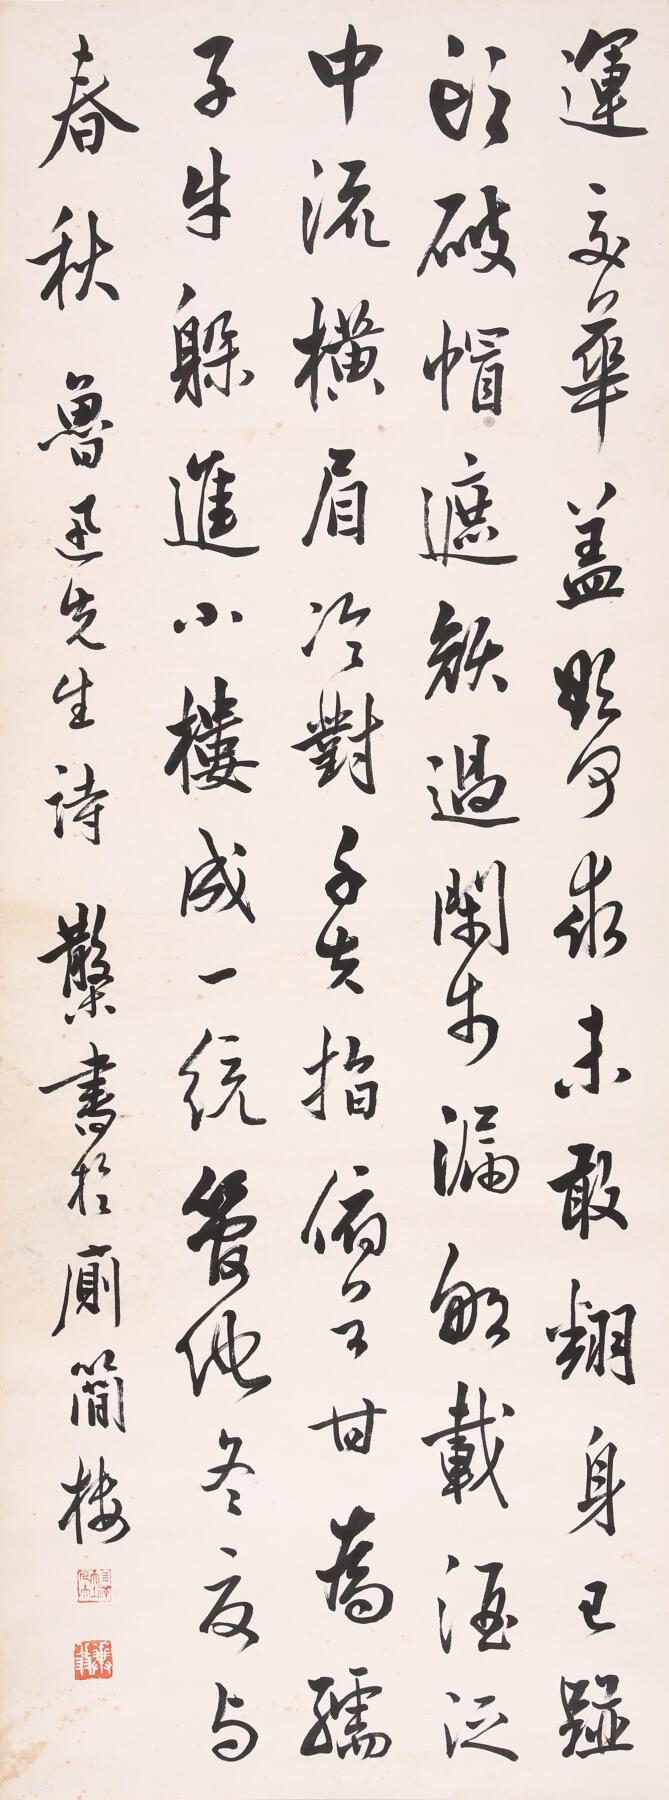 運交華盖欲何求未敢翻身已踫
頭破帽遮顏過鬧市漏船載酒泛
中流橫眉冷對千夫指俯首甘為孺
子牛躲進小樓成一統管他冬夏与
春秋 魯迅先生詩 散木書於廁簡樓